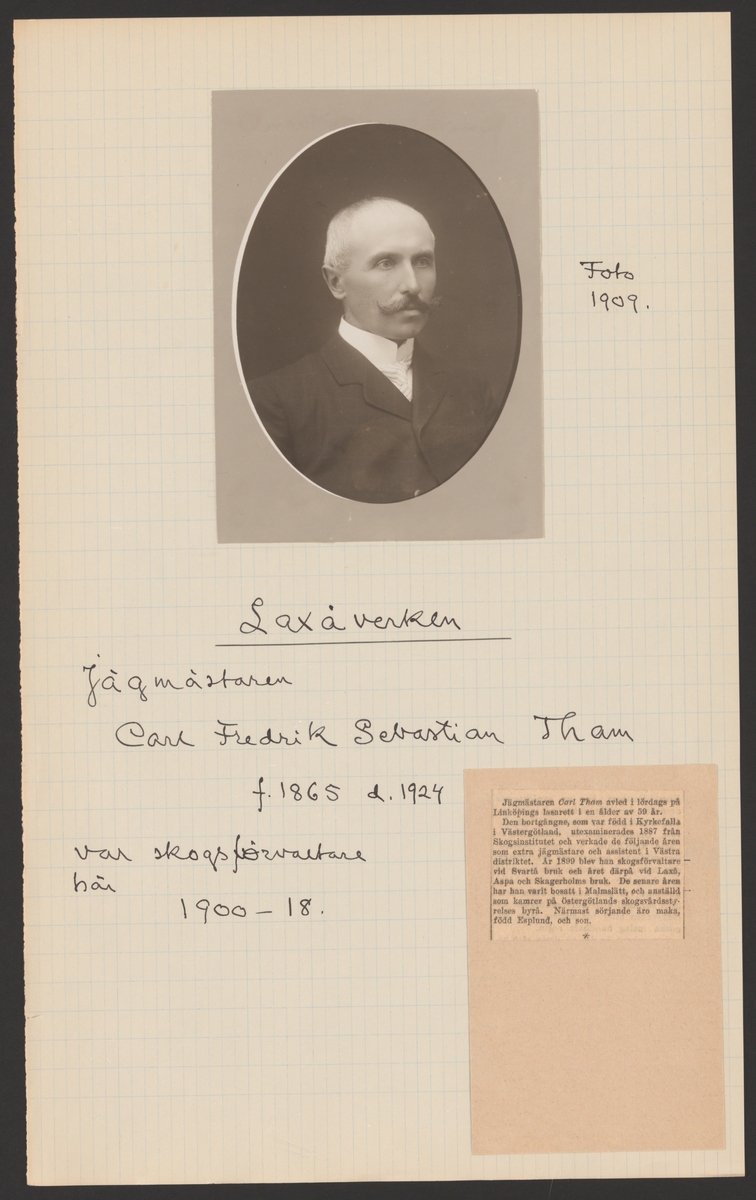 Foto
1909.
Laxåverken
Jägmästaren
Carl Fredrik Sebastian Tham
f. 1865 d. 1924
var skogsförvaltare
här
1900-18.
Jägmästaren Carl Tham avled i lördags på
Linköpings lasarett i en ålder av 59 år.
Den bortgångne, som var född i Kyrkefalla
i Västergötland, utexaminerades 1887 från
Skogsinstitutet och verkade de följande åren
som extra jägmästare och assistent i Västra
distriktet. År 1899 blev han skogsförvaltare
vid Svartå bruk och året därpå vid Laxå,
Aspa och Skagerholms bruk. De senare åren
har han varit bosatt i Malmslätt, och anställd
som kamrer på Östergötlands skogsvårdssty-
relses byrå. Närmast sörjande äro maka,
född Esplund, och son.
*